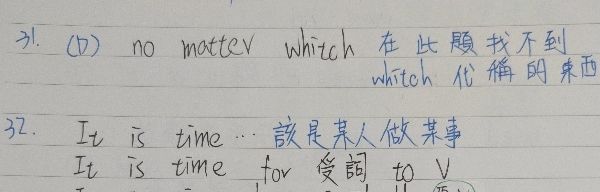 31. (D) no matter whitch 在此題找不到
whitch 代稱的東西
32. It is time … 該是某人做某事
It is time for 受詞 to V